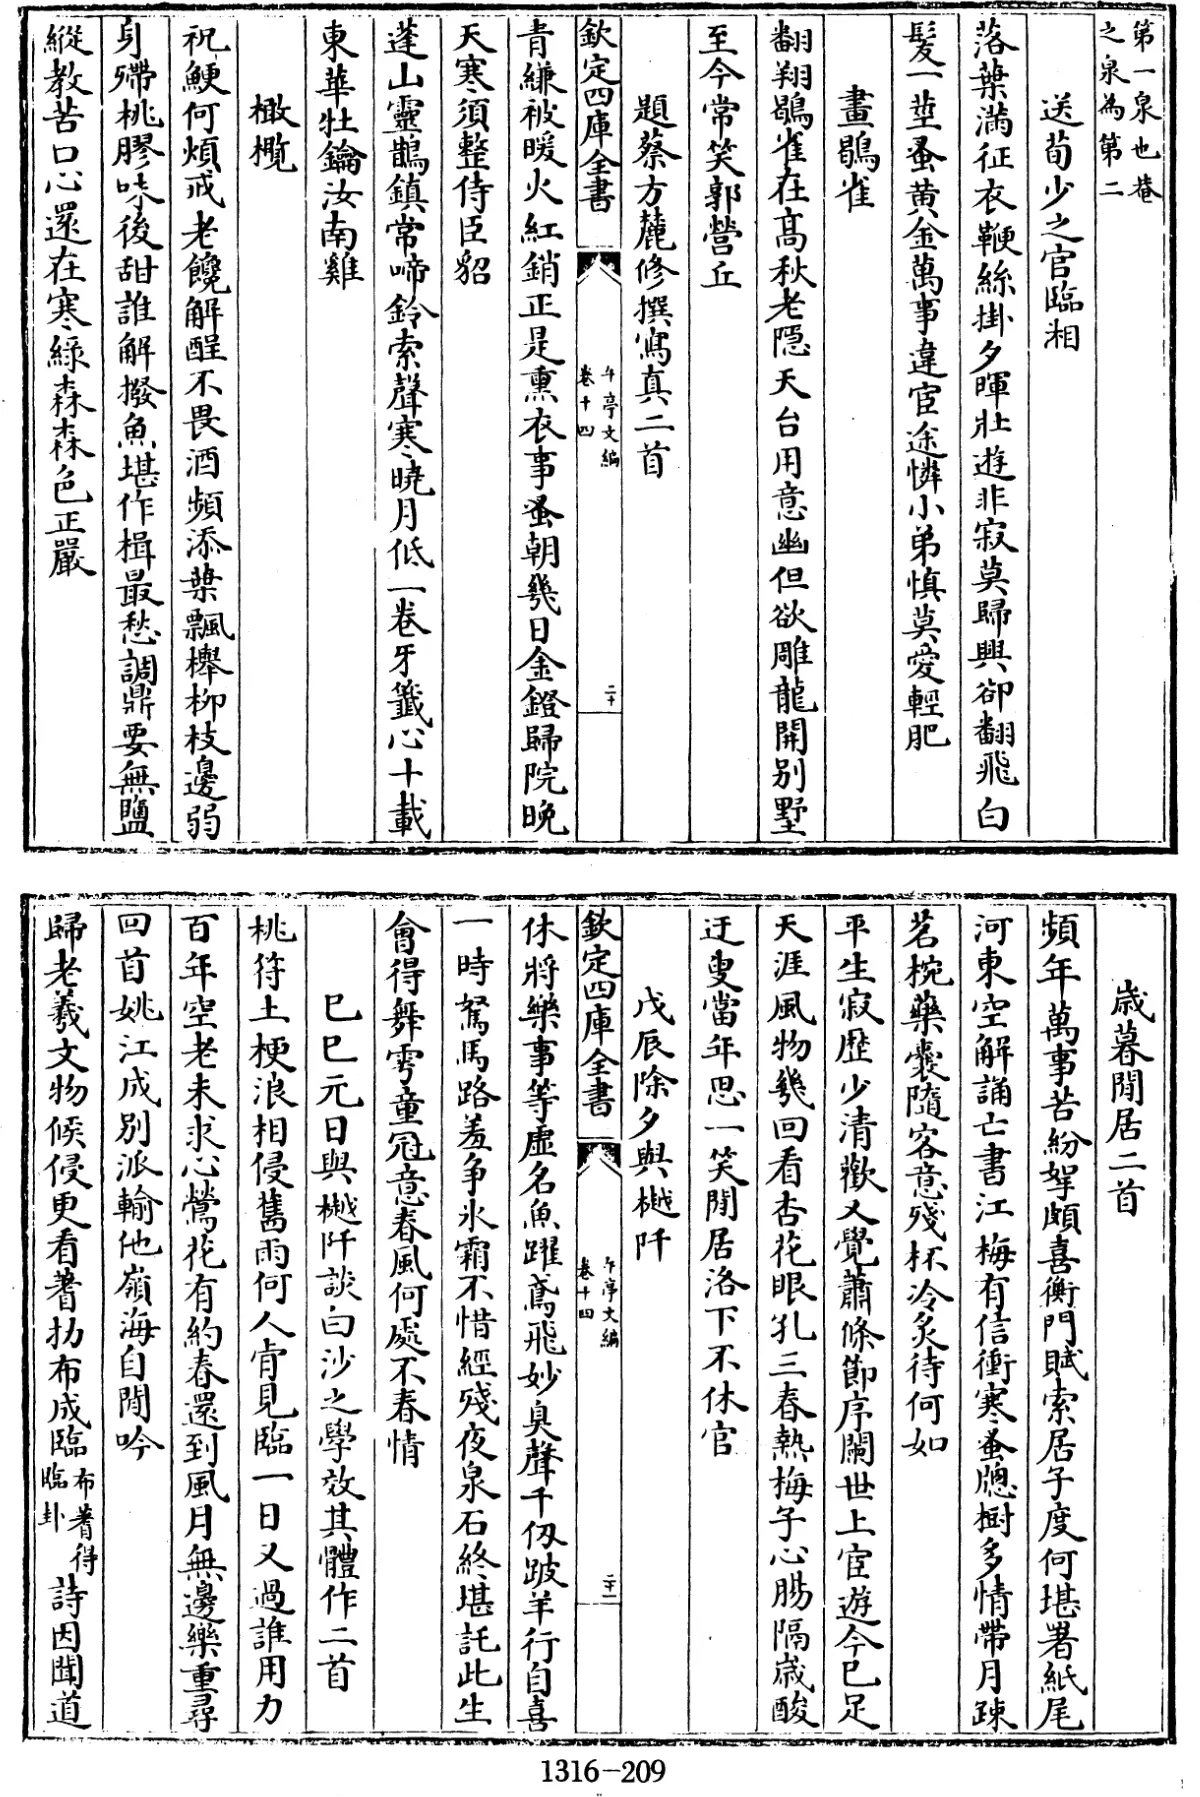 第一泉也巷
之泉為第二
送荀少之官臨湘
落葉滿征衣鞭絲掛夕暉壯遊非寂莫歸興卻翻飛白
髮一莖蚤黄金萬事違宦途憐小弟慎莫愛輕肥
畫鶡雀
翻翔鶡雀在高秋老隠天台用意幽但欲雕龍開别墅
至今常笑郭營丘
題蔡方麓修撰寫真二首
欽定四庫全書
午亭文編
卷十四
二十
青縑被暖火紅銷正是熏衣事蚤朝幾日金鐙歸院晚
天寒須整侍臣貂
蓬山靈鵲鎮常啼鈴索聲寒曉月低一卷牙籖心十載
東華牡鑰汝南雞
橄欖
祝鯁何煩戒老饞解酲不畏酒頻添葉飄櫸柳枝邊弱
身殢桃膠味後甜誰解撥魚堪作楫最愁調鼎要無鹽
縱教苦口心還在寒緑森森色正嚴
歳暮閒居二首
頻年萬事苦紛挐頗喜衡門賦索居子度何堪署紙尾
河東空解誦亡書江梅有信衝寒蚤牕樹多情帶月踈
茗椀藥囊隨客意殘杯冷炙待何如
平生寂歴少清歡又覺蕭條節序闌世上宦遊今已足
天涯風物幾回看杏花眼乳三春熱梅子心腸隔歳酸
迂叟當年思一笑閒居洛下不休官
戊辰除夕與樾阡
欽定四庫全書
午亭文編
卷十四
二十一
休將樂事等虛名魚躍鳶飛妙臭聲千仭跛羊行自喜
一時駑馬路羞争氷霜不惜經殘夜泉石終堪託此生
會得舞雩童冠意春風何處不春情
已巳元日與樾阡談白沙之學效其體作二首
桃符土梗浪相侵舊雨何人肯見臨一日又過誰用力
百年空老未求心鶯花有約春還到風月無邊樂重尋
回首姚江成别派輸他嶺海自閒吟
歸老羲文物候侵更看蓍扐布成臨布蓍得臨卦詩因聞道
1316-209